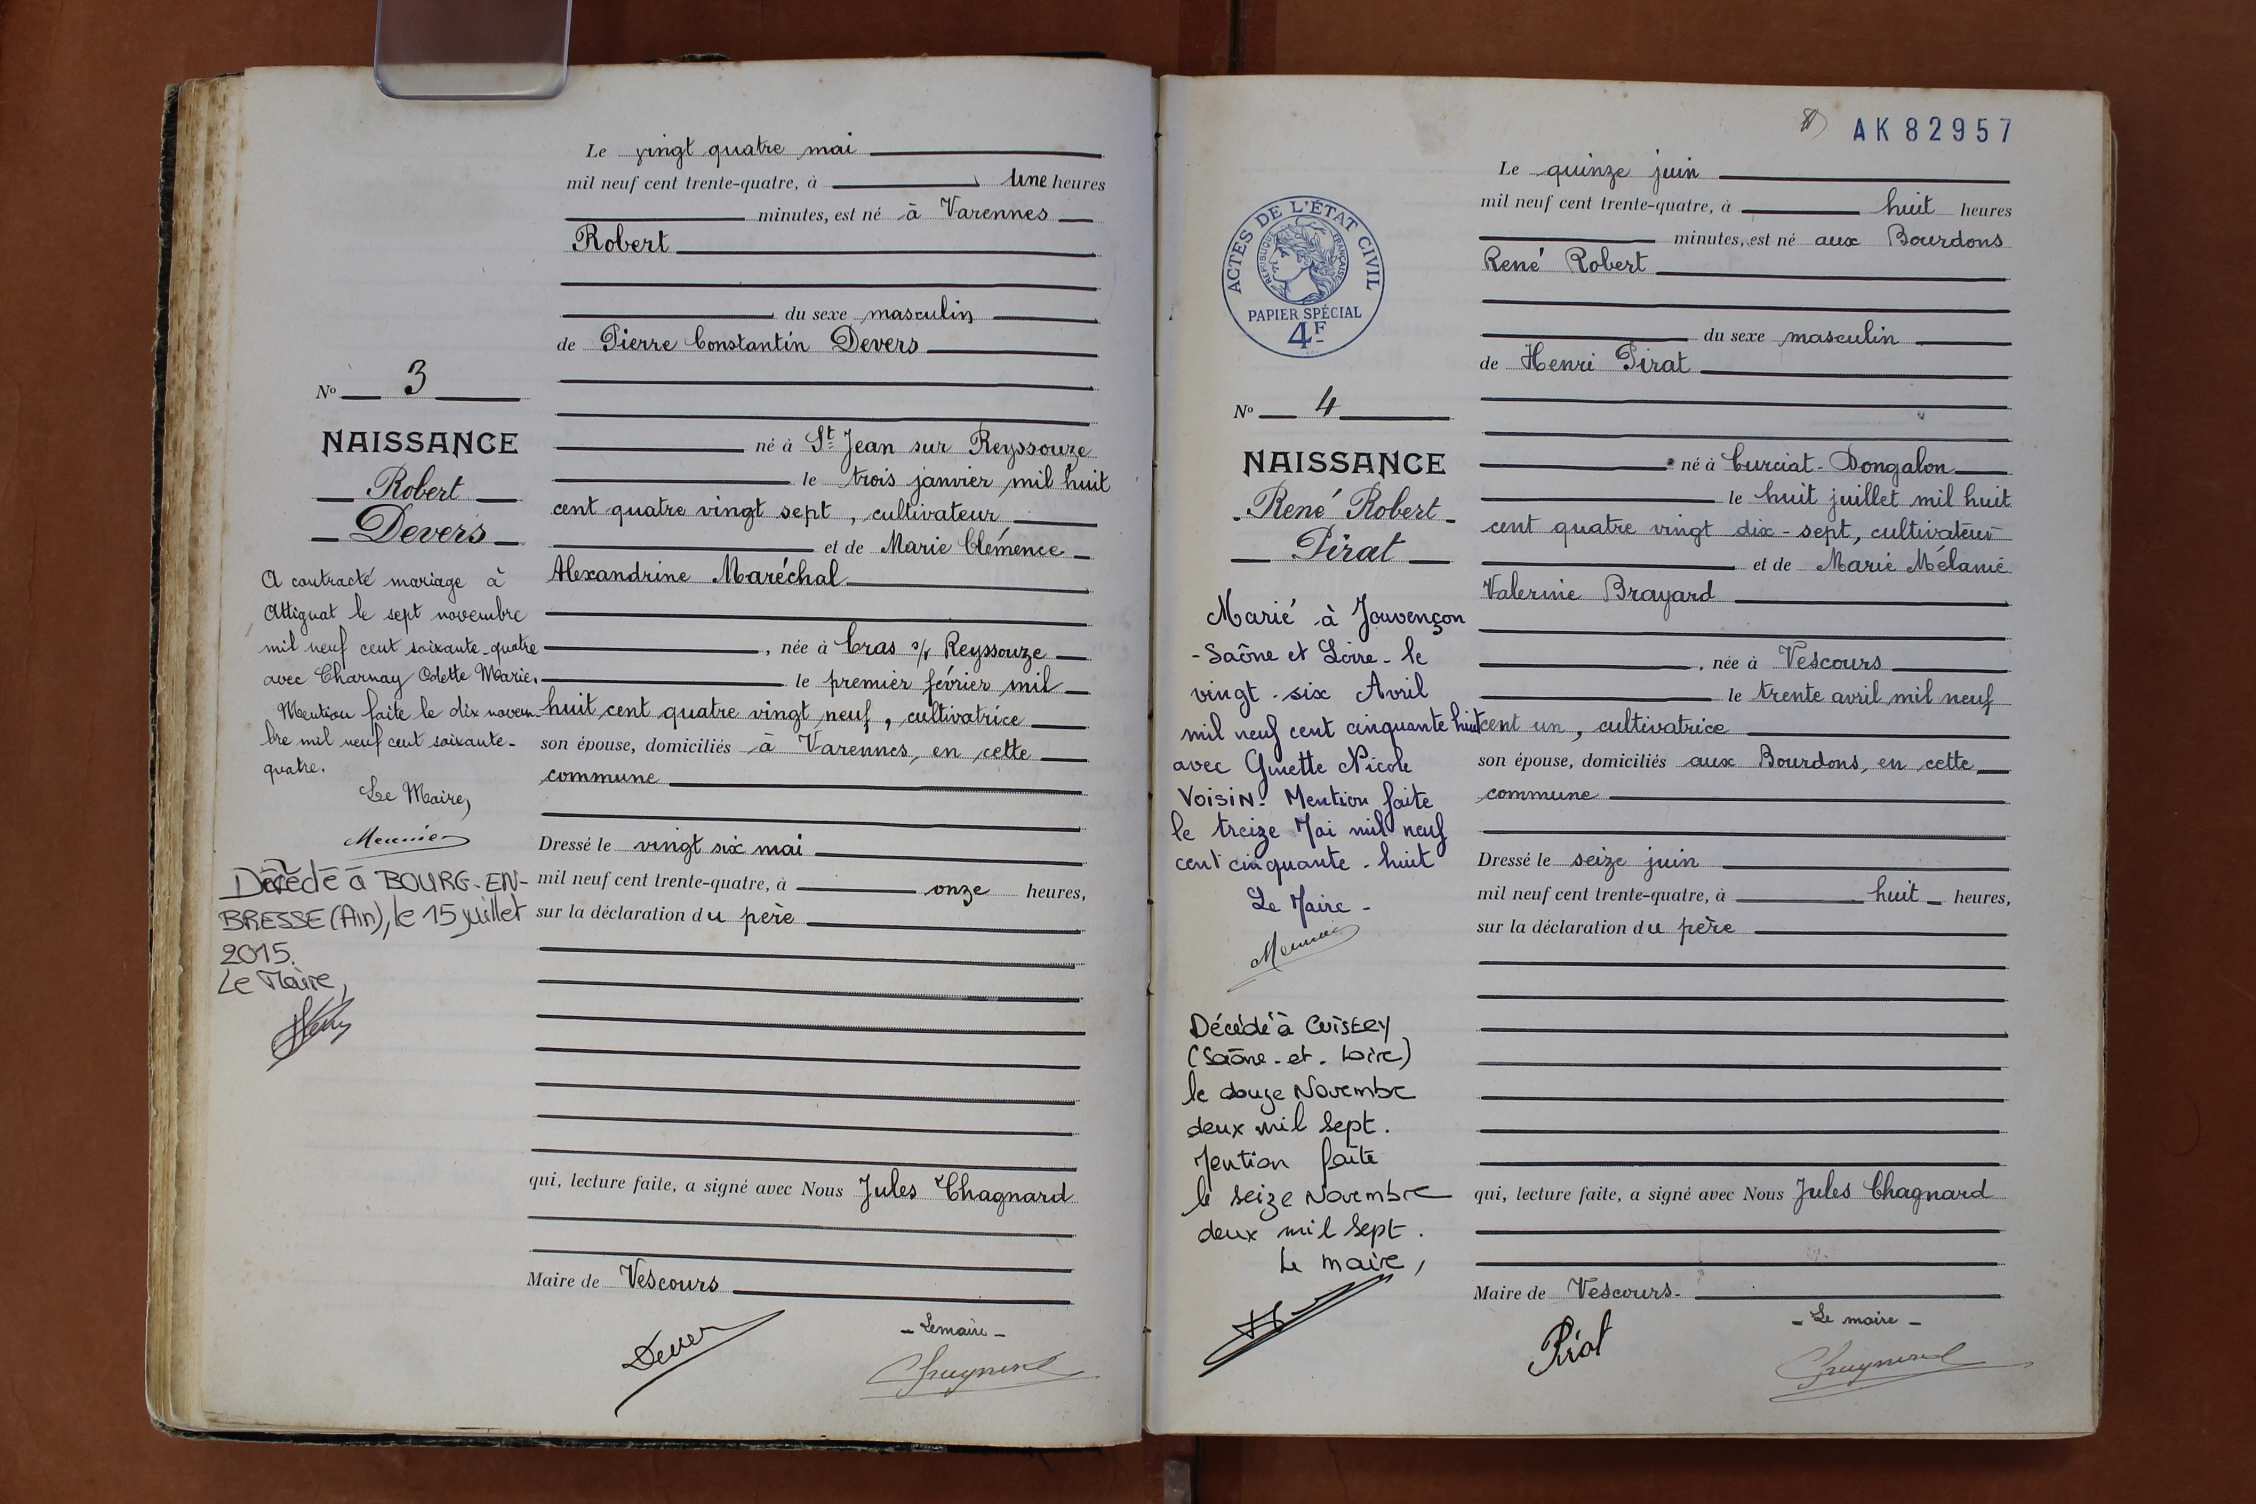 Le vingt quatre mai
mil neuf cent trente-quatre, à Une heures
minutes, est né à Varennes
Robert
du sexe masculin
de Pierre Constantin Devers
No 3
NAISSANCE
Robert
Devers
né à St Jean sur Reyssouze
le trois janvier mil huit
cent quatre vingt sept, cultivateur
et de Marie Clémence
Alexandrine Maréchal
, née à Cras s/ Reyssouze
le premier février mil
huit cent quatre vingt neuf, cultivatrice
son épouse, domiciliés à Varennes, en cette
commune
Dressé le vingt six mai
mil neuf cent trente-quatre, à onze heures,
sur la déclaration du père
qui, lecture faite, a signé avec Nous Jules Chagnard
Maire de Vescours
Le maire
A contracté mariage à
Attignat le sept novembre
mil neuf cent soixante-quatre
avec Charnay Odette Marie.
Mention faite le dix novem-
bre mil neuf cent soixante-
quatre.
Le Maire,
Meunier
Décédé à BOURG-EN-
BRESSE (Ain), le 15 juillet
2015.
Le Maire,
AK 82957
ACTES DE L'ÉTAT CIVIL
RÉPUBLIQUE FRANÇAISE
PAPIER SPÉCIAL
4F
Le quinze juin
mil neuf cent trente-quatre, à huit heures
minutes, est né aux Bourdons
René Robert
du sexe masculin
de Henri Pirat
No 4
NAISSANCE
René Robert
Pirat
né à Curciat-Dongalon
le huit juillet mil huit
cent quatre vingt dix-sept, cultivateur
et de Marie Mélanie
Valerine Brayard
, née à Vescours
le trente avril mil neuf
cent un, cultivatrice
son épouse, domiciliés aux Bourdons, en cette
commune
Dressé le seize juin
mil neuf cent trente-quatre, à huit heures,
sur la déclaration du père
qui, lecture faite, a signé avec Nous Jules Chagnard
Maire de Vescours.
Pirat
- Le maire -
Marié à Jouvençon
-Saône et Loire- le
vingt-six Avril
mil neuf cent cinquante huit
avec Ginette Nicole
VOISIN. Mention faite
le treize Mai mil neuf
cent cinquante-huit
Le Maire-
Meunier
Décédé à CUISERY
(Saône-et-Loire)
le douze Novembre
deux mil sept.
Mention faite
le seize Novembre
deux mil sept.
Le maire,